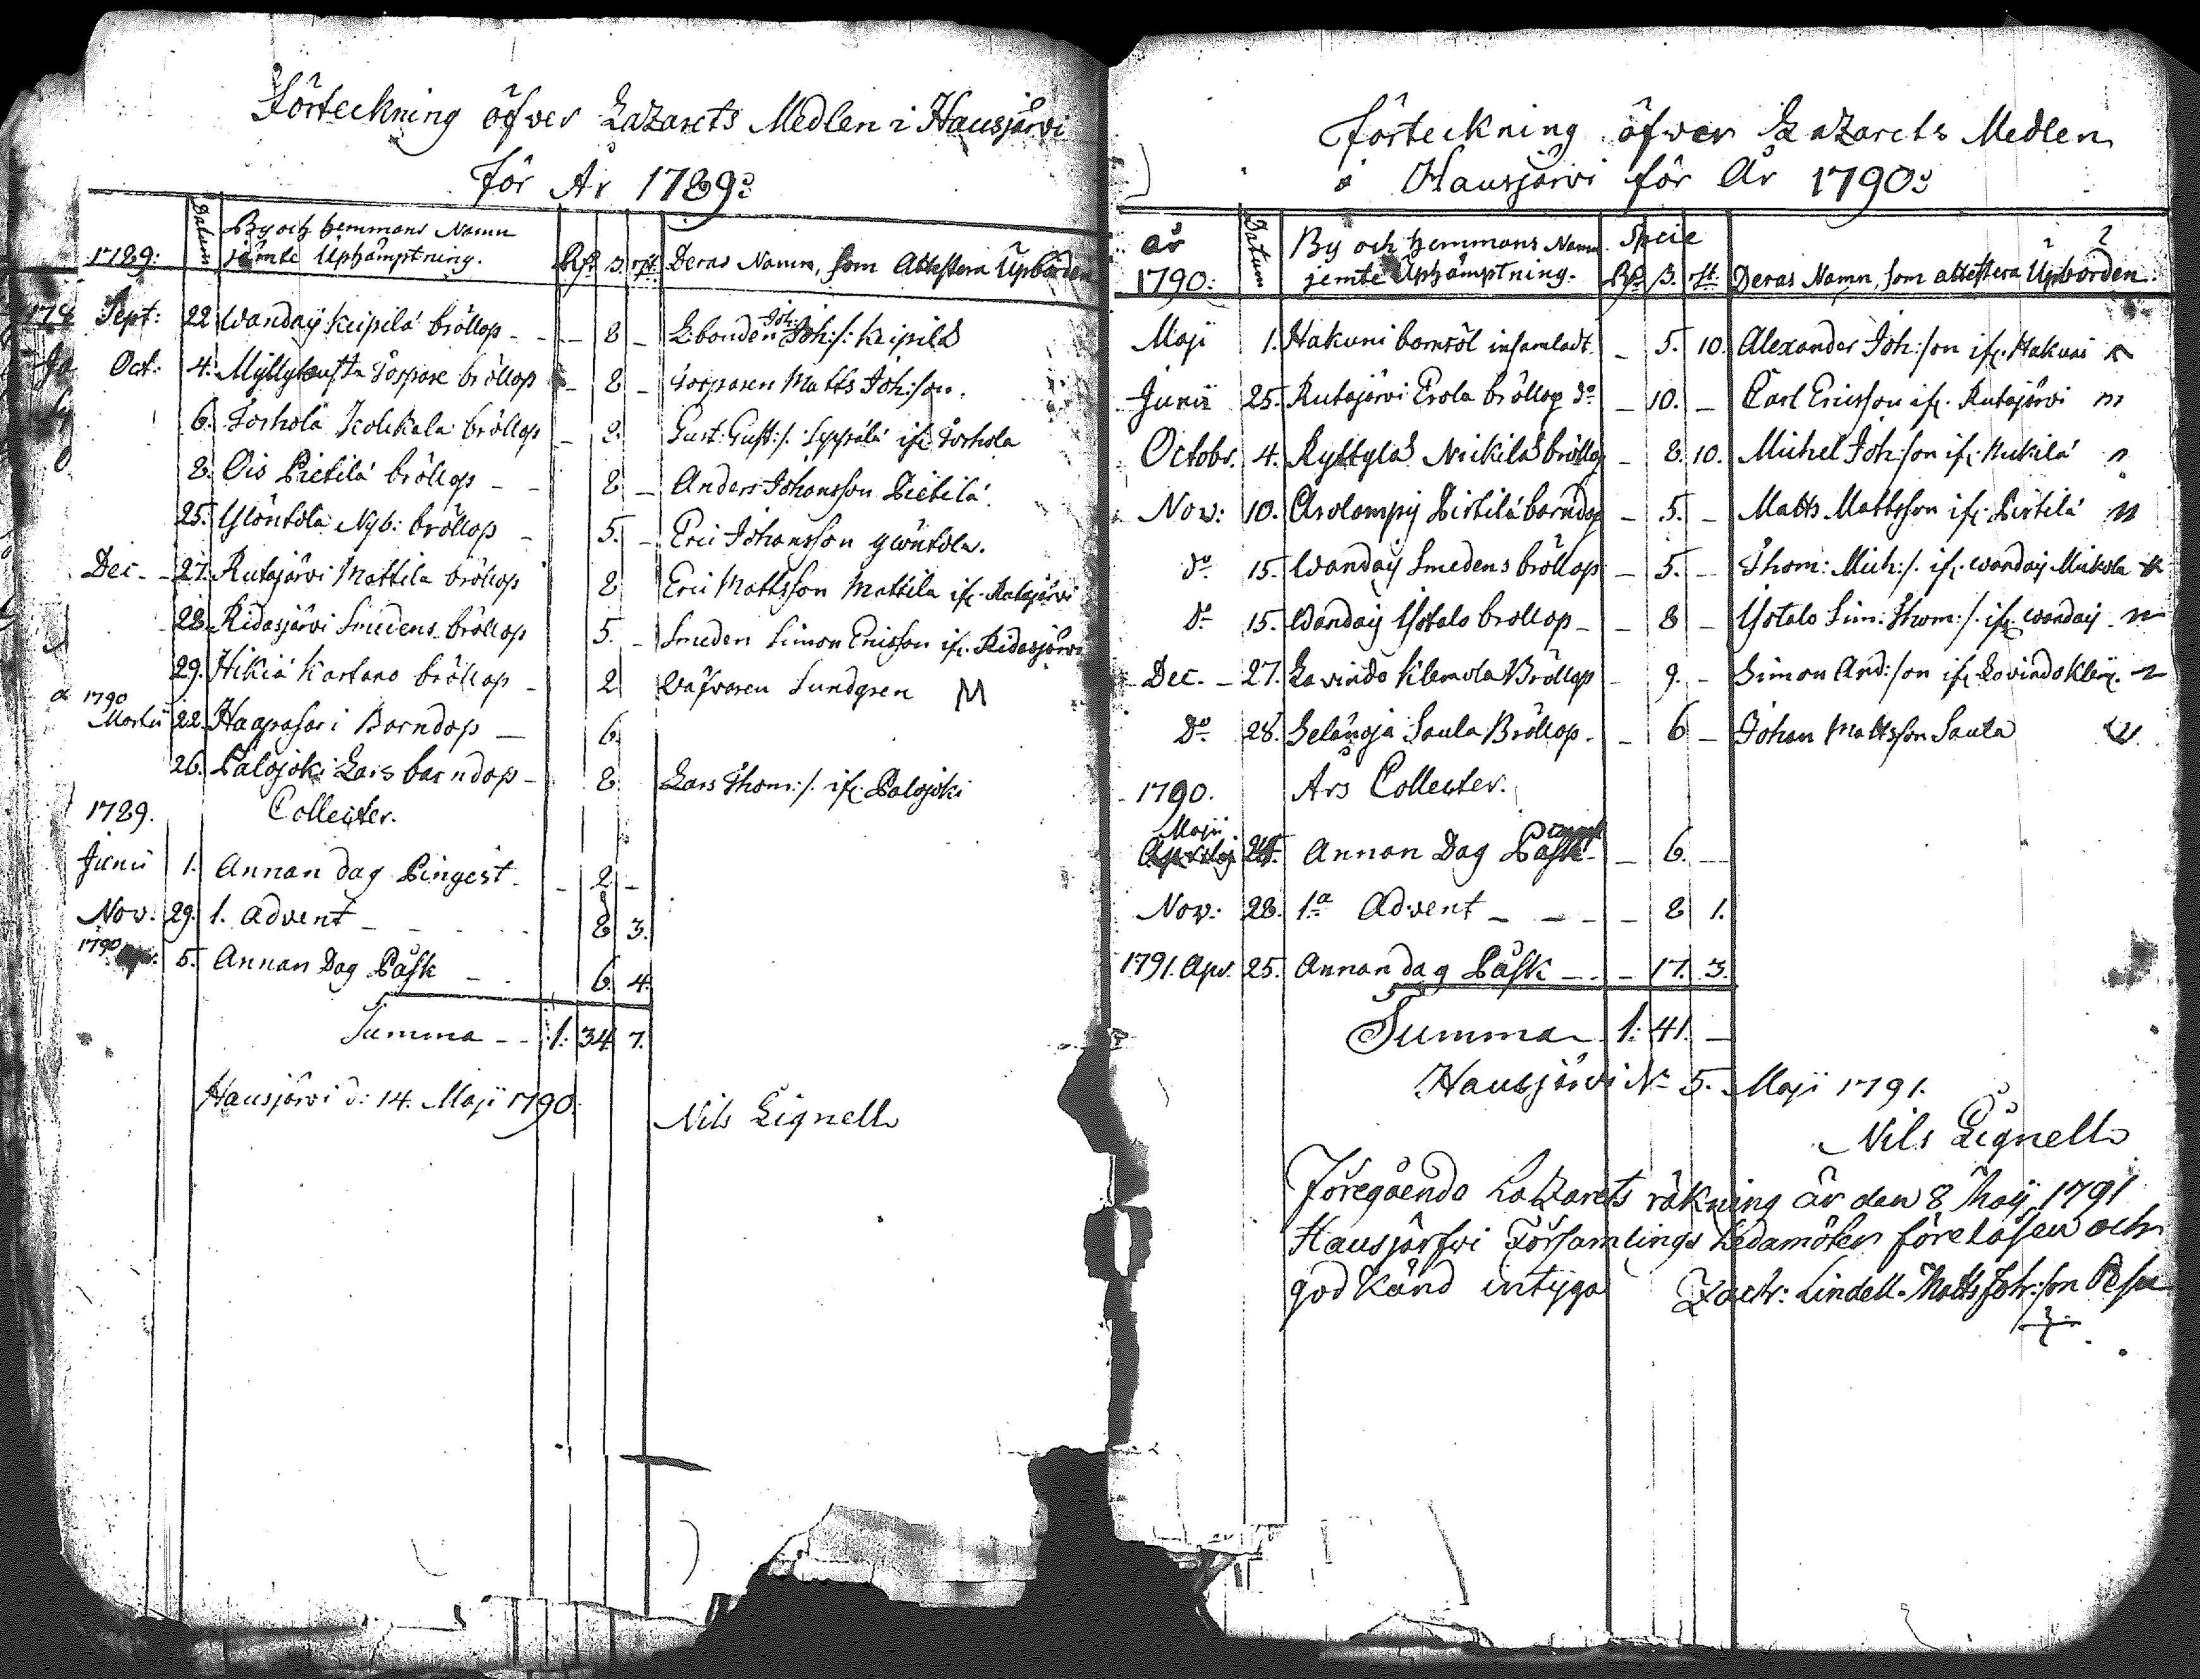 Förteckning öfver Lazarets Medlen i Hausjärvi
för År 1789:
1789: Datum By och hemmans Namn jämte Uphämptning. Rd. s. rst. Deras Namn, som Attestera Upbörden
Sept: 22 Wandaÿ Keipilä bröllop - - 8 - Lbonden Joh: Joh:s: Keipilä
Oct: 4. Myllykusta Torpare bröllop - 8 - Torparen Matts Joh:son.
6. Torhola Kolckala bröllop - 2. Gust: Gust:s. Seppälä if. Torhola
8. Ois Pietilä bröllop - - 8 - Anders Johansson Pietilä.
25. Ylöntola Nyb: bröllop - 5. - Eric Johansson Ylöntola.
Dec. - 27. Rutajärvi Mattila bröllop 8 Eric Mattsson Mattila if. Rutajärvi
28. Ridasjärvi Smedens bröllop 5. - Smeden Simon Ericsson if. Ridasjärvi
29. Hikiä Kartano bröllop - 2 Wäfvaren Lundgren M
a 1790
Martii 22. Haapasari Barndop - 6.
26. Palojoki Lars barndop - 8. Lars Thom:s. if. Palojoki
1789. Collecter.
Junii 1. Annan dag Pingest. - 2. -
Nov: 29. 1. Advent - - - 8 3.
1790 5. Annan Dag Påsk - . 6. 4.
Summa - - 1. 34 7.
Hausjärvi d: 14. Maji 1790. Nils Lignell
Förteckning öfver Lazarets Medlen
i Hausjärvi för År 1790:
år 1790: Datum By och hemmans Namn jemte Uphämptning. Specie Rd. s. rst. Deras Namn, som attestera Upborden.
Maji 1. Hakuni barnsöl insamladt - 5. 10. Alexander Joh:son if. Hakuni
Junii 25. Rutajärvi Erola bröllop do - 10. - Carl Ericsson if. Rutajärvi m
Octobr. 4. Ryttylä Nickilä bröllop - 8. 10. Michel Joh:son if. Nickilä n
Nov: 10. Arolampi Pirtilä barndop - 5. - Matts Mattsson if. Pirtilä m
do 15. Wandaÿ Smedens bröllop - 5. - Thom: Mich:s. if. Wandaÿ Mickola
do 15. Wandaÿ Ylötalo bröllop - - 8 - Ylötalo Sim: Thom:s. if. Wandaÿ
Dec. - 27. Lavindo Klemola Bröllop - 9. - Simon And:son if. Lavindo Klem.
Do 28. Selänoja Saula Bröllop. - 6 - Johan Mattsson Saula
1790. Års Collecter.
Maji 24. Annan Dag Pingst - 6. -
Nov: 28. 1a Advent - - - - 8 1.
1791. Apr. 25. Annan dag Påsk - - - 17. 3.
Summa 1: 41. -
Hausjärvi d: 5. Maji 1791.
Nils Lignell
Föregående Latzarets räkning är den 8 Maÿ 1791
Hausjärfvi Församlings Ledamöter föreläsen och
god känd intÿga Zachr: Lindell. Matts Joh:son